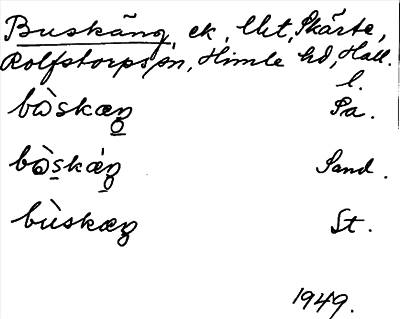 Buskäng, ek, lht, Skärte,
Rolfstorps sn, Himle hd, Hall.
l.
bò̀skæŋ Sa.
bò̀skæ̀ŋ Sand.
bùskæŋ St.
1949.